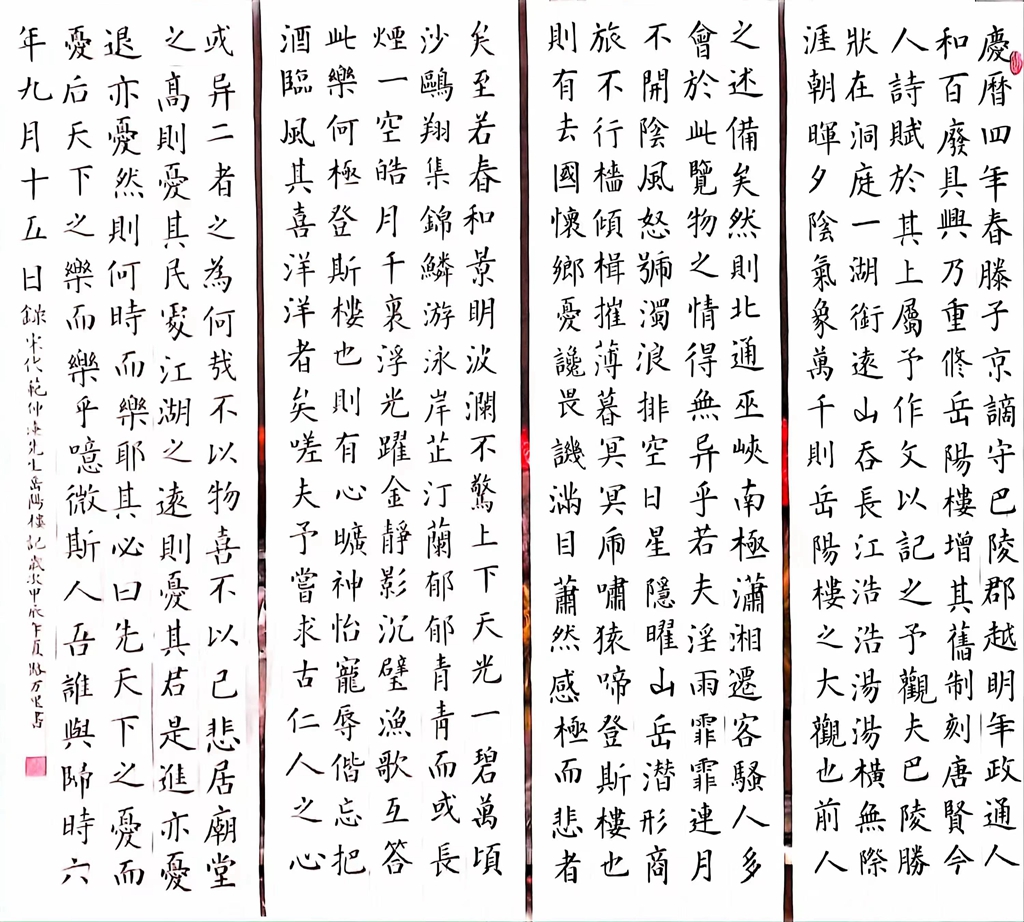 慶曆四年春滕子京謫守巴陵郡越明年政通人
和百廢具興乃重修岳陽樓增其舊制刻唐賢今
人詩賦於其上屬予作文以記之予觀夫巴陵勝
狀在洞庭一湖銜遠山吞長江浩浩湯湯橫無際
涯朝暉夕陰氣象萬千則岳陽樓之大觀也前人
之述備矣然則北通巫峽南極瀟湘遷客騷人多
會於此覽物之情得無异乎若夫淫雨霏霏連月
不開陰風怒號濁浪排空日星隱曜山岳潛形商
旅不行檣傾楫摧薄暮冥冥虎嘯猿啼登斯樓也
則有去國懷鄉憂讒畏譏滿目蕭然感極而悲者
矣至若春和景明波瀾不驚上下天光一碧萬頃
沙鷗翔集錦鱗游泳岸芷汀蘭郁郁青青而或長
煙一空皓月千裏浮光躍金靜影沉璧漁歌互答
此樂何極登斯樓也則有心曠神怡寵辱偕忘把
酒臨風其喜洋洋者矣嗟夫予嘗求古仁人之心
或异二者之為何哉不以物喜不以己悲居廟堂
之高則憂其民處江湖之遠則憂其君是進亦憂
退亦憂然則何時而樂耶其必曰先天下之憂而
憂后天下之樂而樂乎噫微斯人吾誰與歸時六
年九月十五日錄宋代範仲淹先生岳陽樓記歲次甲辰年夏路万里書